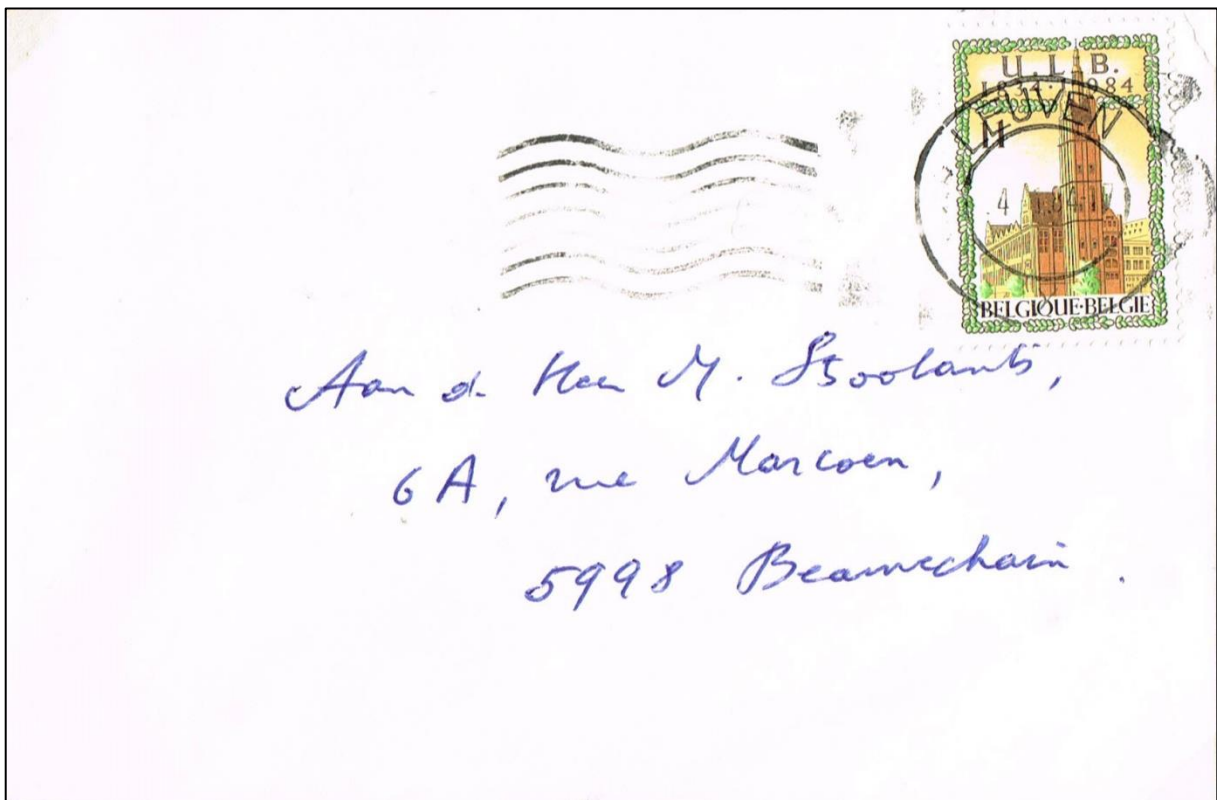 U.L.B.
1834-1984
LEUVEN
M
4
BELGIQUE·BELGIE
Aan de Heer M. Stoolants,
6A, rue Marcoen,
5998 Beauvechain.